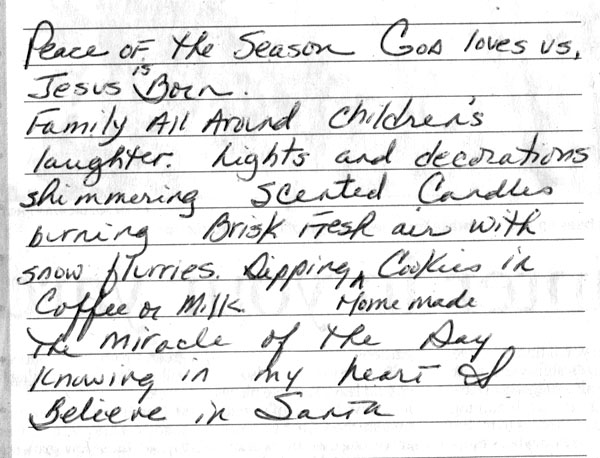 Peace of the Season God loves us,
Jesus is Born.
Family All Around Children's
laughter. Lights and decorations
shimmering Scented Candles
burning Brisk Fresh air with
snow flurries. Dipping Homemade Cookies in
Coffee or Milk
The miracle of the Day
Knowing in my heart I
Believe in Santa